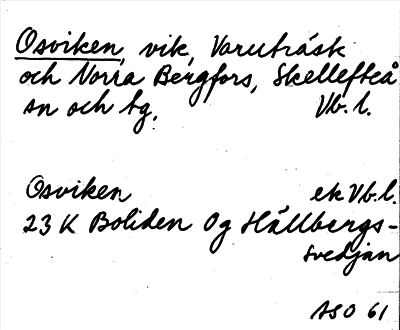 Osviken, vik, Varuträsk
och Norra Bergfors, Skellefteå
sn och tg, Vb. l.
Osviken ek Vb. l.
23 K Boliden Og Hällbergs-
svedjan
ASO 61